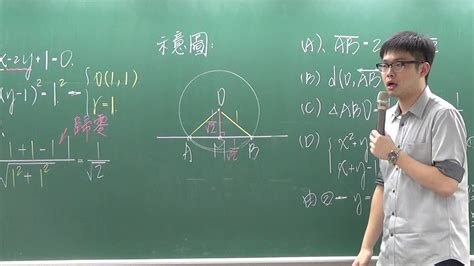 x-2y+1=0.
(y-1)²=1². { O(1,1)
r=1
歸零
|1+1-1| / √(1²+1²) = 1/√2
示意圖:
O
1
A H B
1/√2
(A). AB=2
(B) d(O, AB
(C). △ABO=
(D) { x²+y
x+y-1
由②-y=